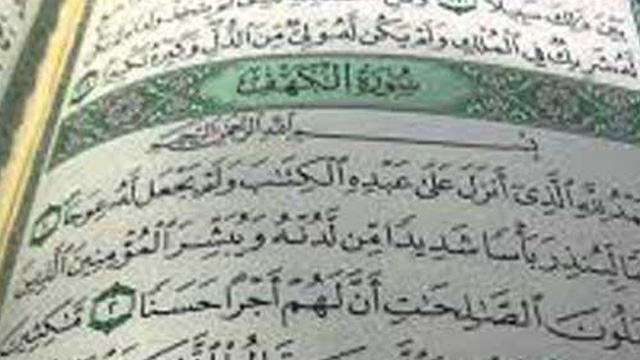 لَّهُ شَرِيكٌ فِي ٱلْمُلْكِ وَلَمْ يَكُن لَّهُۥ وَلِيٌّ مِّنَ ٱلذُّلِّ وَكَبِّرْهُ تَكْبِيرًا
سُورَةُ الْكَهْفِ
بِسْمِ ٱللَّهِ ٱلرَّحْمَٰنِ ٱلرَّحِيمِ
ٱلَّذِىٓ أَنزَلَ عَلَىٰ عَبْدِهِ ٱلْكِتَٰبَ وَلَمْ يَجْعَل لَّهُۥ عِوَجَا ١
لِّيُنذِرَ بَأْسًا شَدِيدًا مِّن لَّدُنْهُ وَيُبَشِّرَ ٱلْمُؤْمِنِينَ ٱلَّذِينَ
ٱلصَّٰلِحَٰتِ أَنَّ لَهُمْ أَجْرًا حَسَنًا ٢ مَّٰكِثِينَ